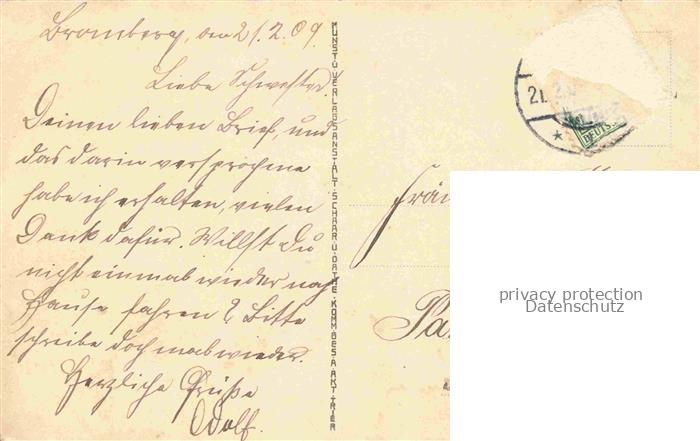 Bromberg, den 21.2.09.
Liebe Schwester!
Deinen lieben Brief, und
das darin versprochne
habe ich erhalten, vielen
Dank dafür. Willst Du
nicht einmal wieder nach
Hause fahren? Bitte
schreibe doch mal wieder.
Herzliche Grüße
Adolf.
KUNST U. VERLAGSANSTALT SCHAAR U. DATHE KOMM. GES. A. AKT. TRIER
21. 2.0
DEUTS
Fräu
Pa
privacy protection
Datenschutz